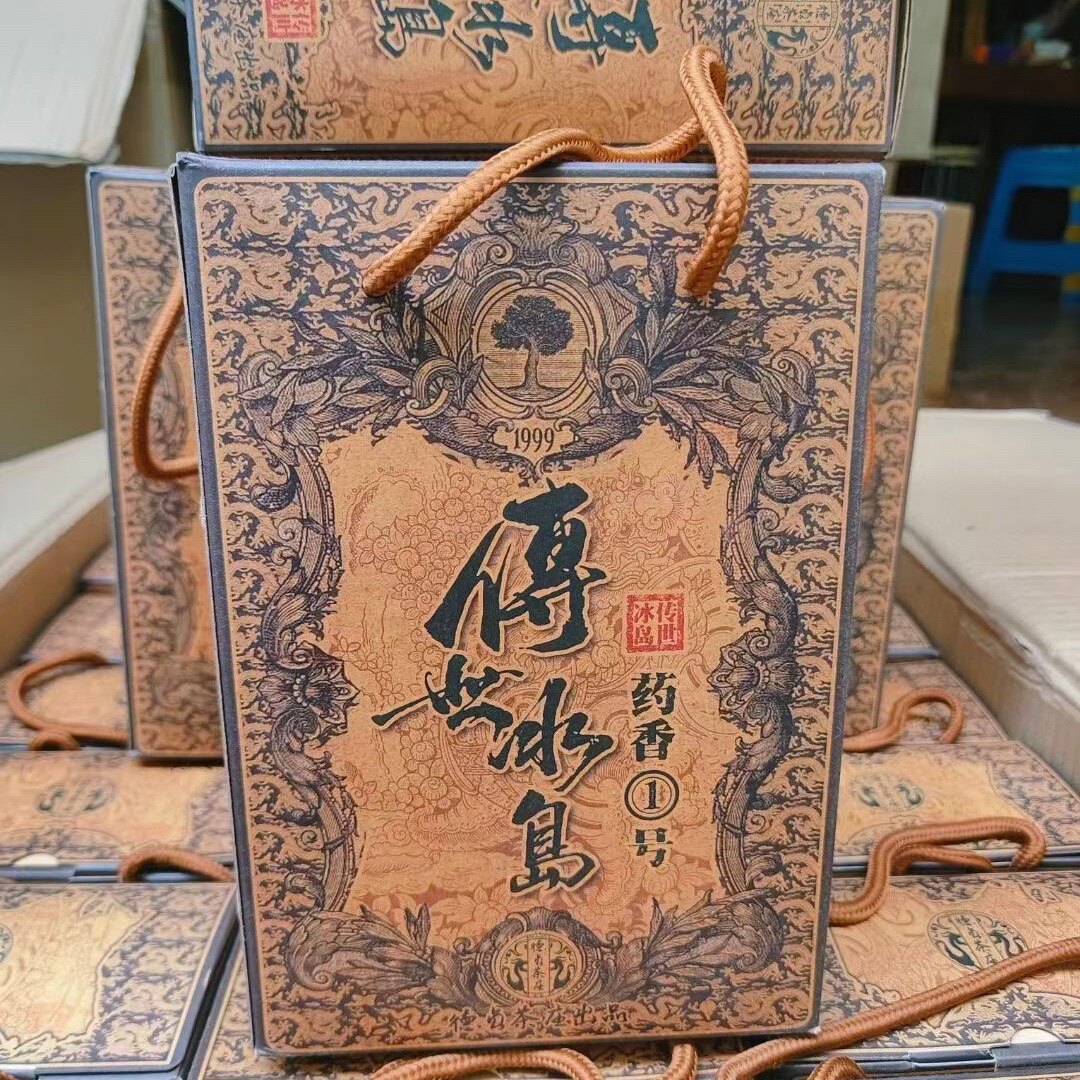 1999
傳世冰島
传世
冰岛
药香①号
出品